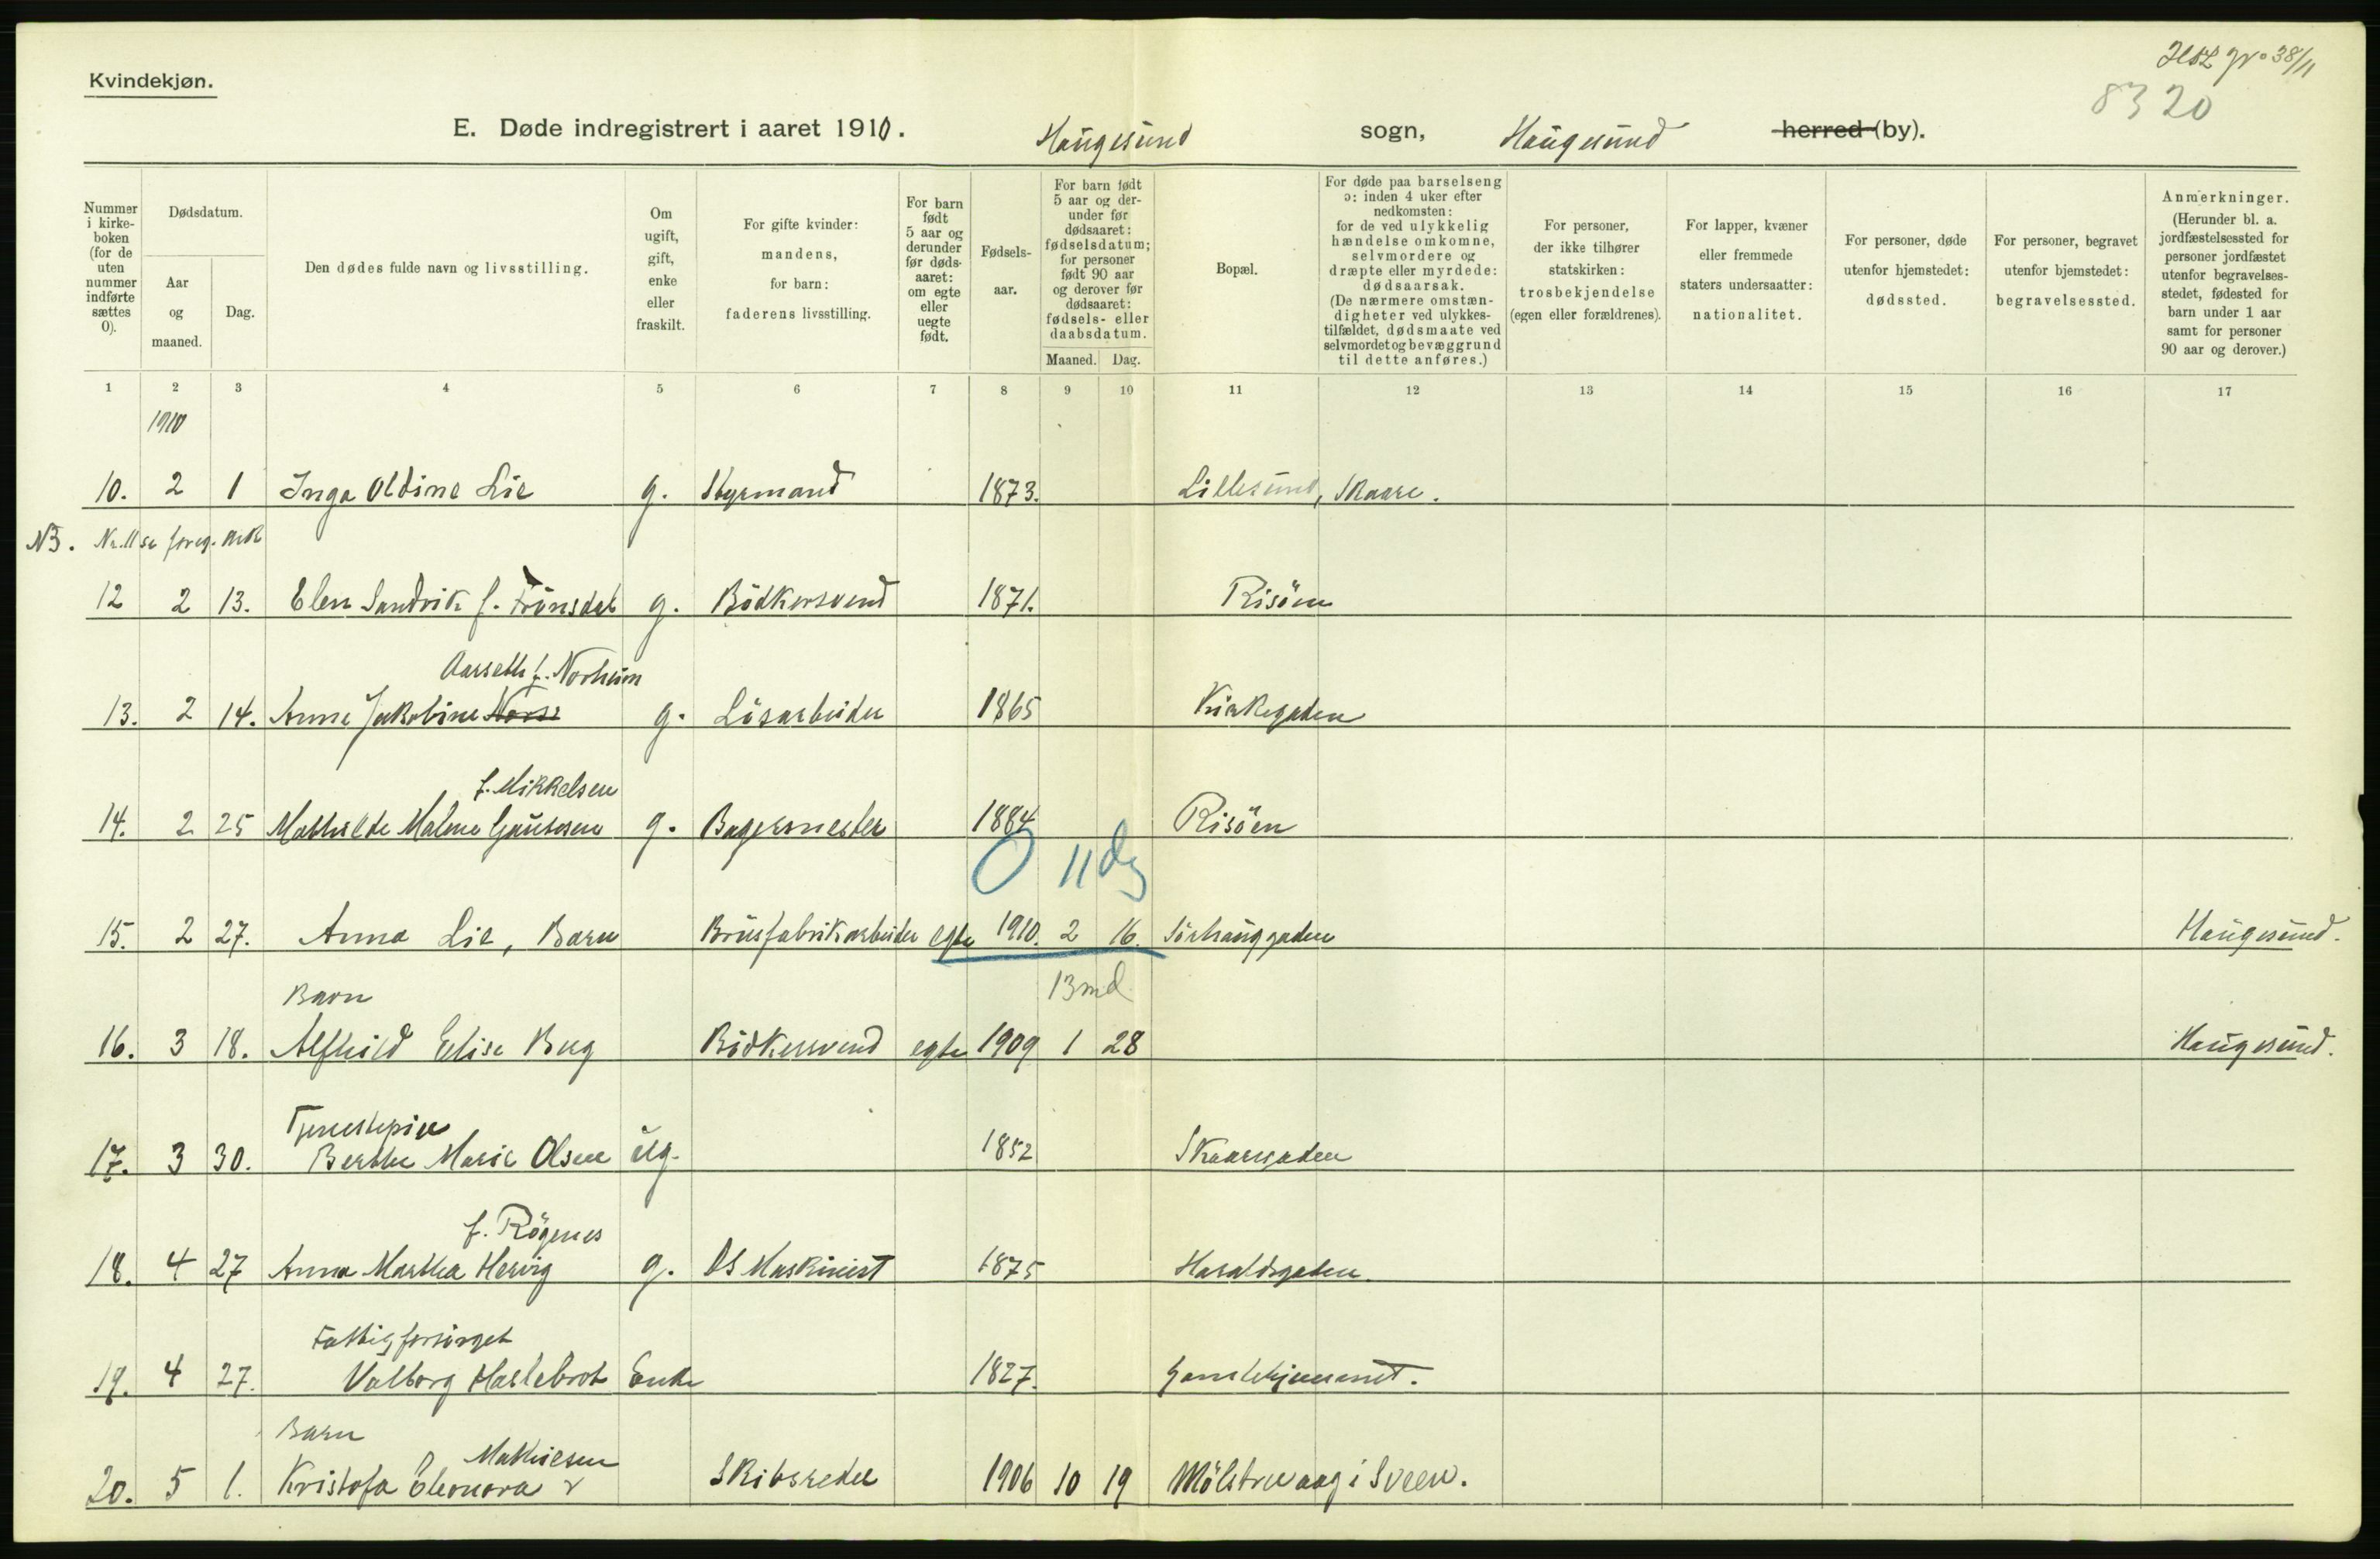 Kvindekjøn.
No 38/11
83 20
E. Døde indregistrert i aaret 1910. Haugesund sogn, Haugesund herred (by).
Nummer i kirkeboken (for de uten nummer indførte sættes 0).
Dødsdatum.
Aar og maaned.
Dag.
Den dødes fulde navn og livsstilling.
Om ugift, gift, enke eller fraskilt.
For gifte kvinder: mandens, for barn: faderens livsstilling.
For barn født 5 aar og derunder før dødsaaret: om egte eller uegte født.
Fødselsaar.
For barn født 5 aar og derunder før dødsaaret: fødselsdatum; for personer født 90 aar og derover før dødsaaret: fødsels- eller daabsdatum.
Maaned. Dag.
Bopæl.
For døde paa barselseng ɔ: inden 4 uker efter nedkomsten: for de ved ulykkelig hændelse omkomne, selvmordere og dræpte eller myrdede: dødsaarsak. (De nærmere omstændigheter ved ulykkestilfældet, dødsmaate ved selvmordet og bevæggrund til dette anføres.)
For personer, der ikke tilhører statskirken: trosbekjendelse (egen eller forældrenes).
For lapper, kvæner eller fremmede staters undersaatter: nationalitet.
For personer, døde utenfor hjemstedet: dødssted.
For personer, begravet utenfor hjemstedet: begravelsessted.
Anmerkninger. (Herunder bl. a. jordfæstelsessted for personer jordfæstet utenfor begravelsesstedet, fødested for barn under 1 aar samt for personer 90 aar og derover.)
1 2 3 4 5 6 7 8 9 10 11 12 13 14 15 16 17
1910
10. 2 1 Inga Oldine Lie g. Styrmand 1873. Lillesund, Skaare.
NB. Nr. 11 se foreg. ark
12 2 13. Elen Sandvik f. Frönsdal g. Bödkersvend 1871. Risöen
Aarseth f. Norheim
13. 2 14. Anne Jakobine Norse g. Lösarbeider 1865 Kirkegaden
f. Mikkelsen
14. 2 25 Mathilde Malene Gausesen g. Bagermester 1884 Risöen
0 11 dg
15. 2 27. Anna Lie, Barn Brusfabrikarbeider egte 1910. 2 16. Sörhauggaden Haugesund.
Barn 13 md.
16. 3 18. Alfhild Elise Berg Bödkersvend egte 1909 1 28 Haugesund.
Tjenestepige
17. 3 30. Berthe Marie Olsen ug. 1852 Skaaregaden
f. Rögenes
18. 4 27 Anna Martha Hervig g. DS Maskinist 1875 Haraldsgaden.
Fattigforsörget
19. 4 27. Valborg Haslebrot Enke 1827. Gamlehjemmet.
Barn
Mathiesen
20. 5 1. Kristofa Eleonora Skibsreder 1906 10 19 Mölstrevaag i Sveen.